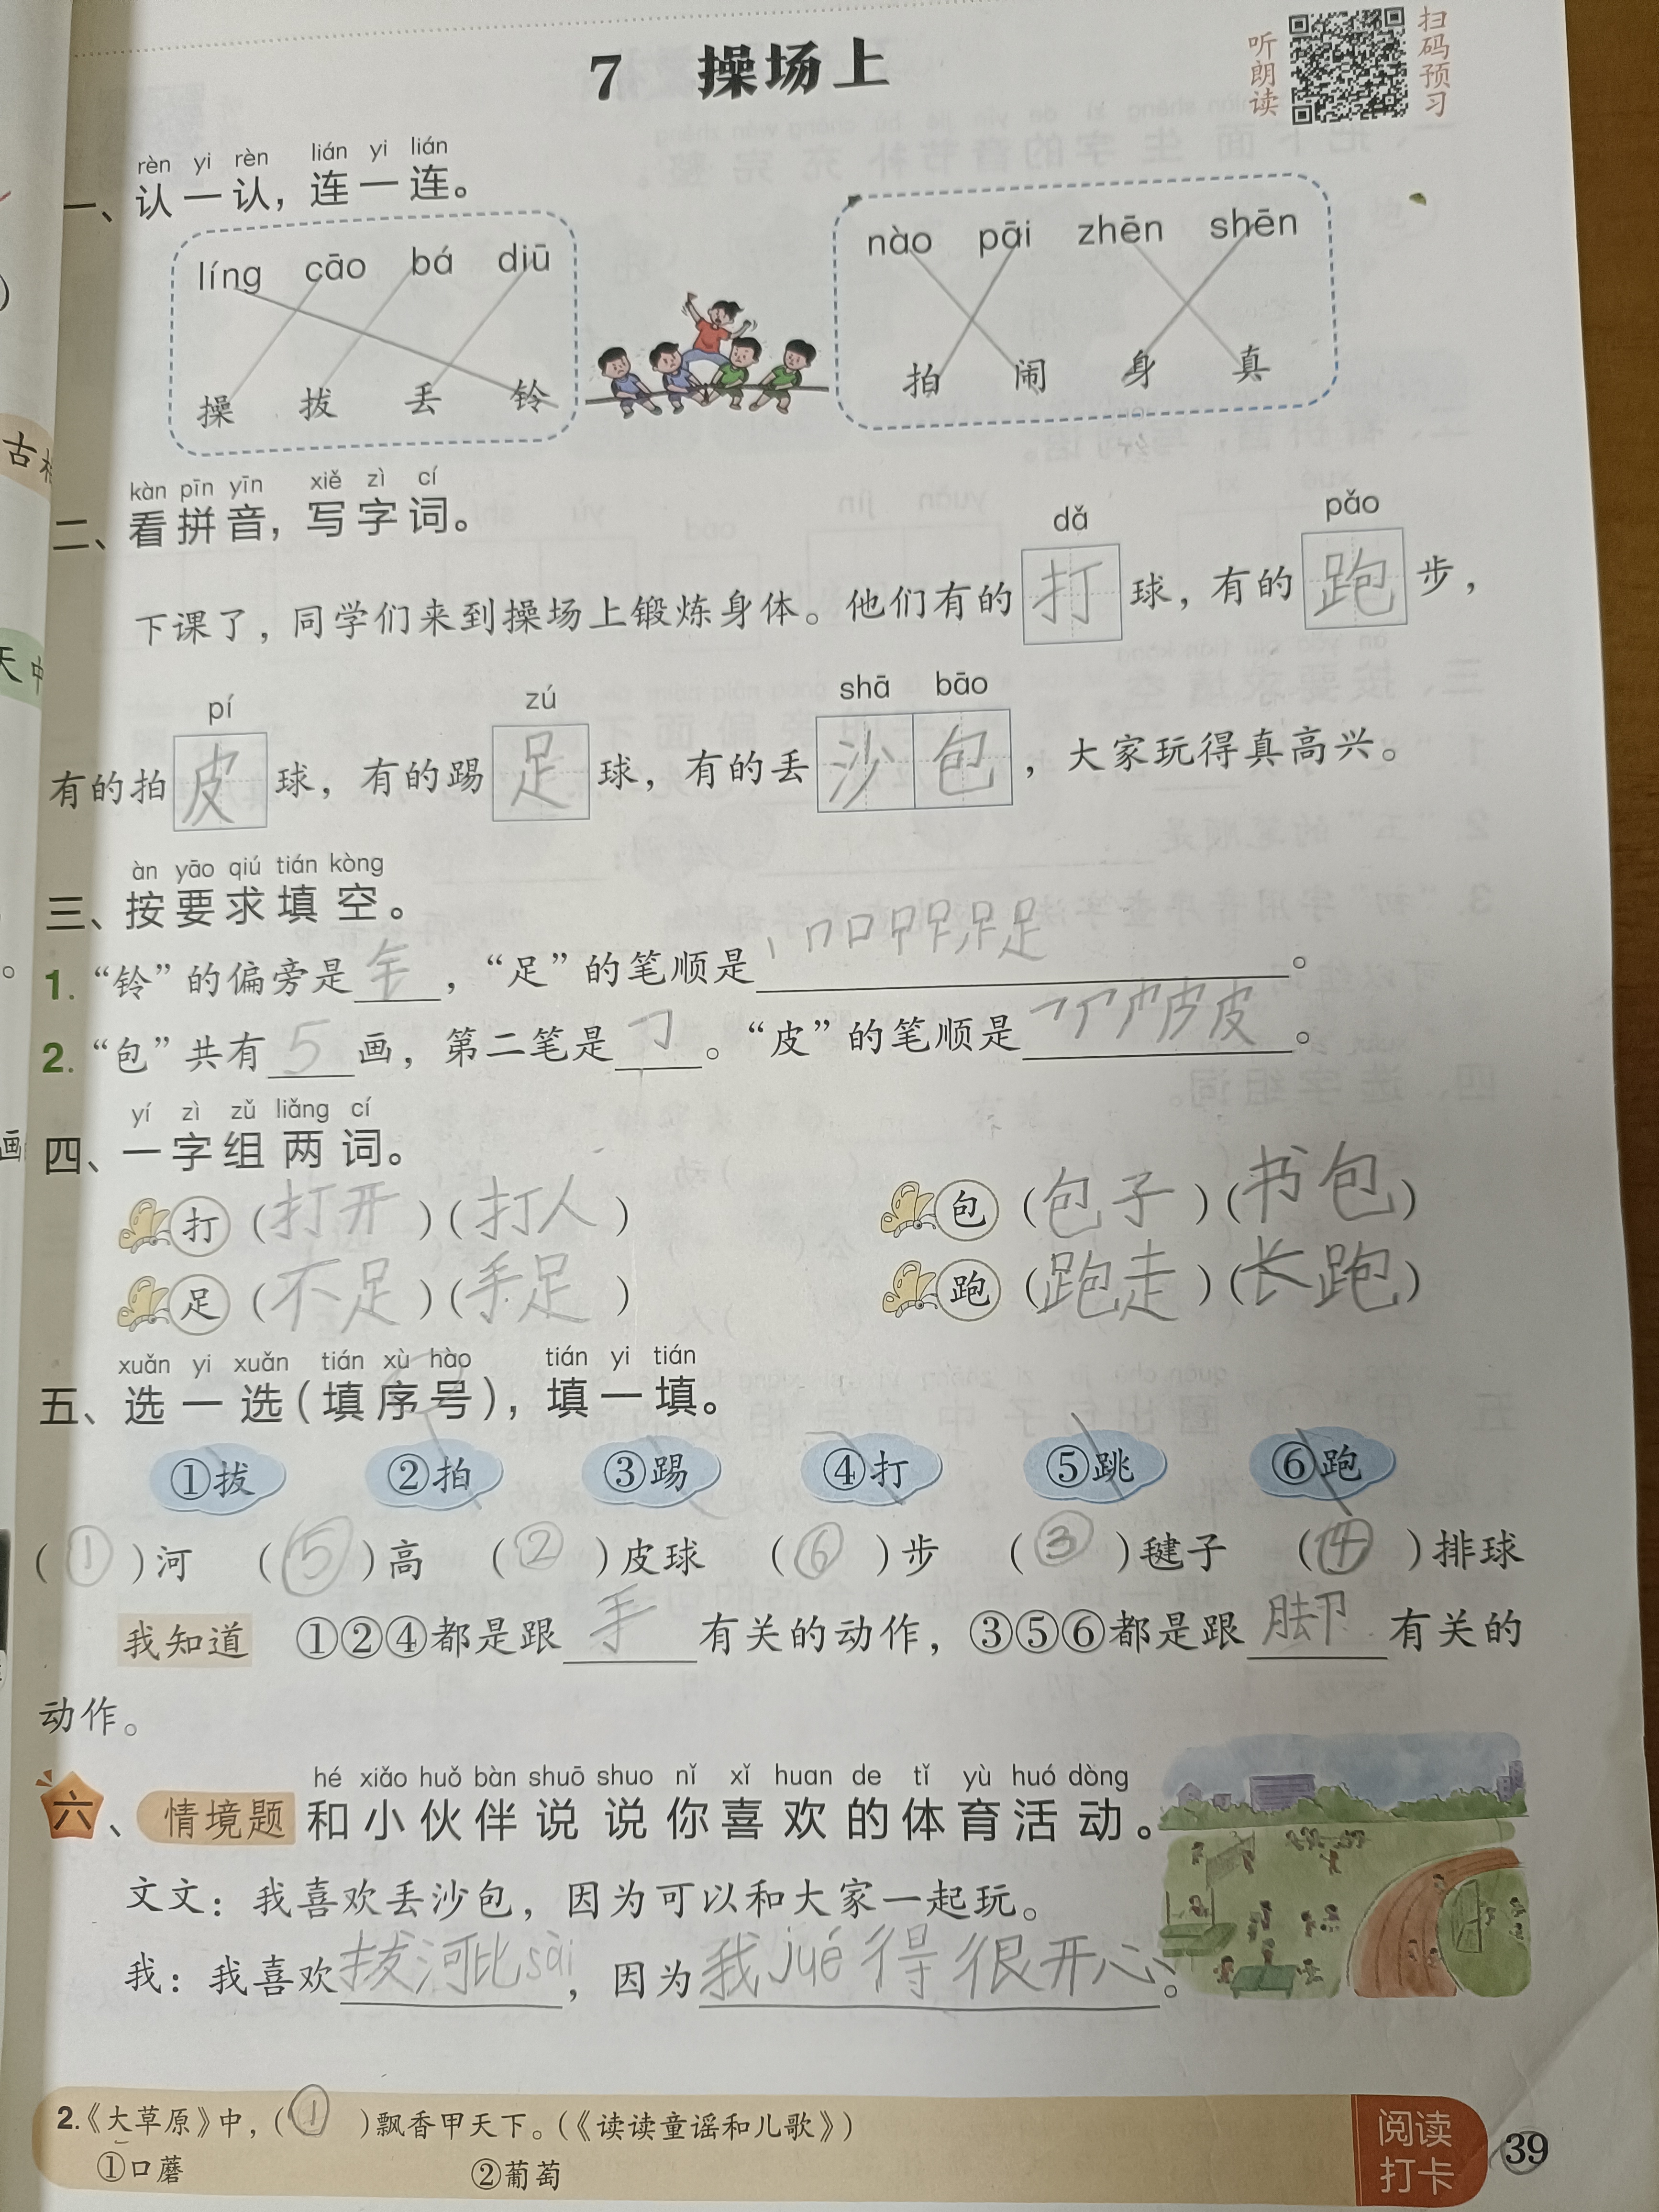 7 操场上
听朗读
扫码预习
rèn yi rèn lián yi lián
一、认一认，连一连。
líng cāo bá diū
操 拔 丢 铃
nào pāi zhēn shēn
拍 闹 身 真
kàn pīn yīn xiě zì cí
二、看拼音，写字词。
dǎ pǎo
下课了，同学们来到操场上锻炼身体。他们有的打球，有的跑步，
pí zú shā bāo
有的拍皮球，有的踢足球，有的丢沙包，大家玩得真高兴。
àn yāo qiú tián kòng
三、按要求填空。
1.“铃”的偏旁是钅，“足”的笔顺是丨 𠃍 口 足。
2.“包”共有5画，第二笔是㇆。“皮”的笔顺是皮。
yí zì zǔ liǎng cí
四、一字组两词。
打（打开）（打人） 包（包子）（书包）
足（不足）（手足） 跑（跑走）（长跑）
xuǎn yi xuǎn tián xù hào tián yi tián
五、选一选（填序号），填一填。
①拔 ②拍 ③踢 ④打 ⑤跳 ⑥跑
（①）河 （⑤）高 （②）皮球 （⑥）步 （③）毽子 （④）排球
我知道 ①②④都是跟手有关的动作，③⑤⑥都是跟脚有关的
动作。
hé xiǎo huǒ bàn shuō shuo nǐ xǐ huan de tǐ yù huó dòng
六、情境题 和小伙伴说说你喜欢的体育活动。
文文：我喜欢丢沙包，因为可以和大家一起玩。
我：我喜欢拔河比sài，因为我jué得很开心。
2.《大草原》中，（①）飘香甲天下。（《读读童谣和儿歌》）
①口蘑 ②葡萄
阅读
打卡
39